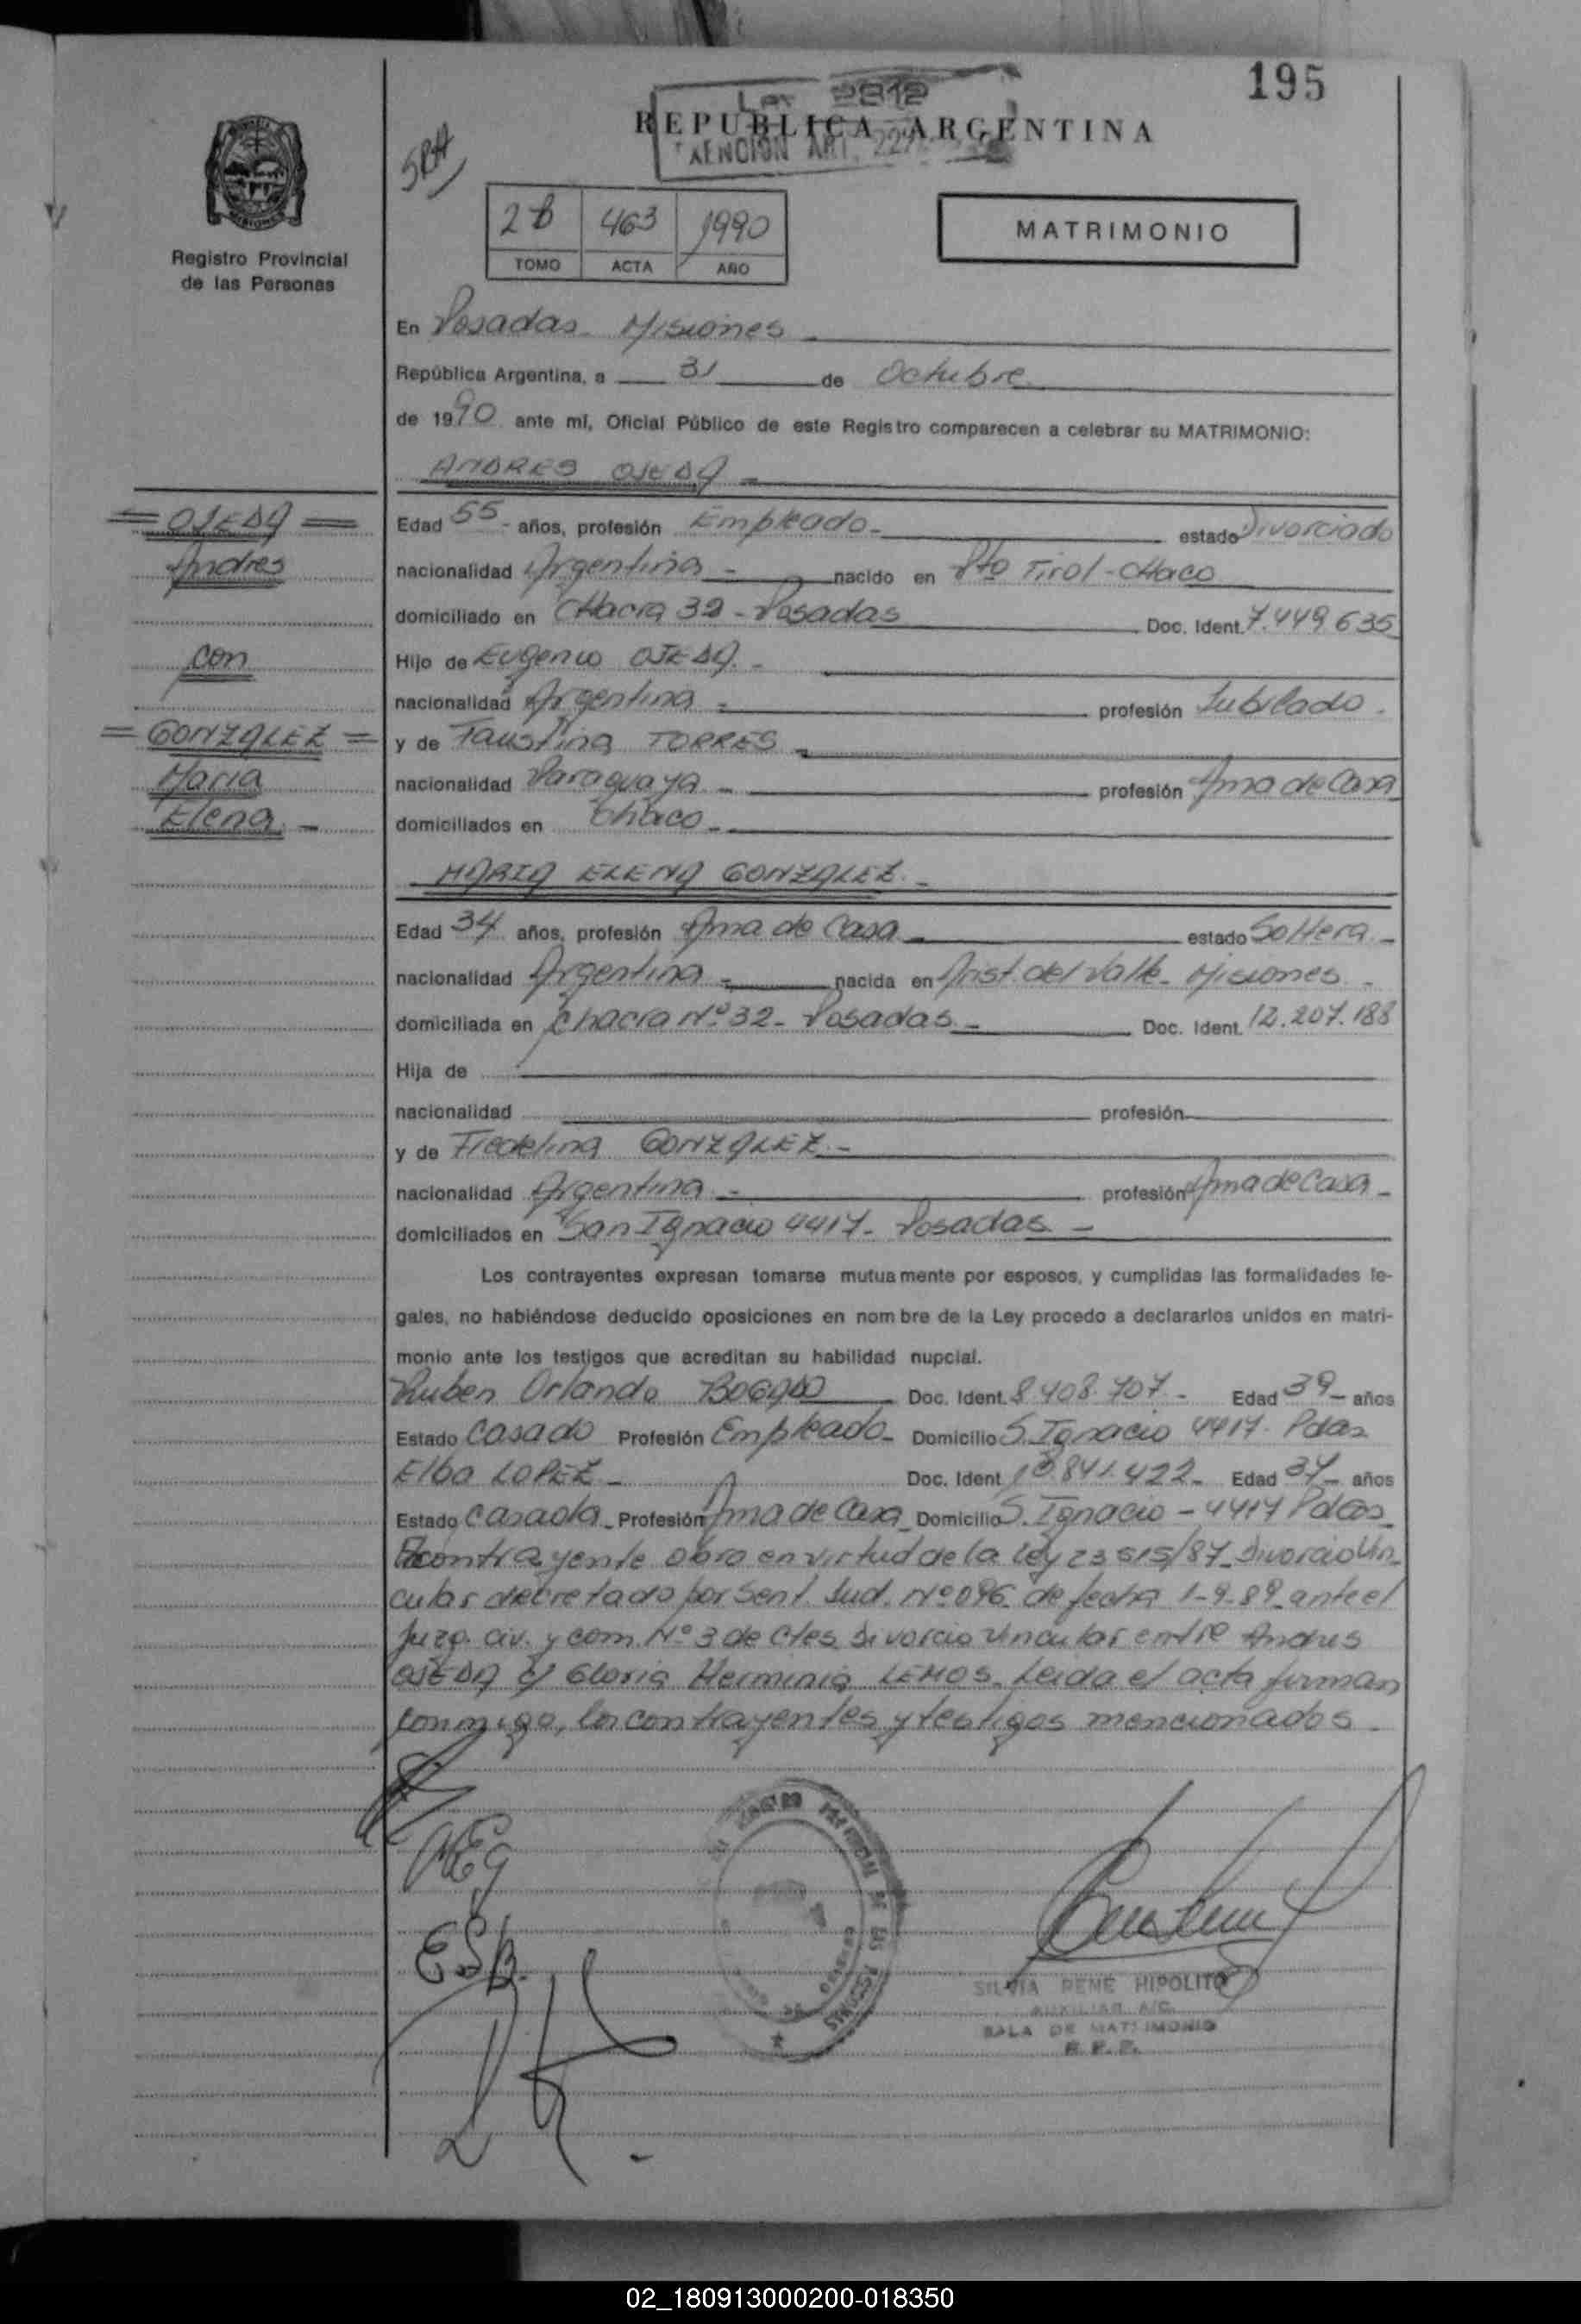 195
Ley 2812
REPUBLICA ARGENTINA
EXENCION ART. 227
Registro Provincial
de las Personas
2B 463 1990
TOMO ACTA AÑO
MATRIMONIO
En Posadas - Misiones
República Argentina, a 31 de Octubre
de 1990 ante mí, Oficial Público de este Registro comparecen a celebrar su MATRIMONIO:
ANDRES OJEDA -
= OJEDA =
Andres
con
= GONZALEZ =
Maria
Elena. -
Edad 55 - años, profesión Empleado - estado Divorciado
nacionalidad Argentina - nacido en Pto Tirol - Chaco
domiciliado en Chacra 32 - Posadas Doc. Ident. 7.449.635
Hijo de Eugenio OJEDA. -
nacionalidad Argentina - profesión Jubilado.
y de Faustina TORRES -
nacionalidad Paraguaya - profesión Ama de Casa
domiciliados en Chaco -
MARIA ELENA GONZALEZ. -
Edad 34 años, profesión Ama de Casa - estado Soltera -
nacionalidad Argentina - nacida en Arist. del Valle - Misiones -
domiciliada en Chacra Nº 32 - Posadas - Doc. Ident. 12.207.188
Hija de
nacionalidad profesión
y de Fidelina GONZALEZ -
nacionalidad Argentina - profesión Ama de Casa -
domiciliados en San Ignacio 4417 - Posadas -
Los contrayentes expresan tomarse mutuamente por esposos, y cumplidas las formalidades le-
gales, no habiéndose deducido oposiciones en nombre de la Ley procedo a declararlos unidos en matri-
monio ante los testigos que acreditan su habilidad nupcial.
Ruben Orlando BOGADO Doc. Ident. 8.408.707 - Edad 39 - años
Estado Casado Profesión Empleado - Domicilio S. Ignacio 4417 - Pdas
Elba LOPEZ - Doc. Ident. 10.841.422 - Edad 37 - años
Estado Casada - Profesión Ama de Casa - Domicilio S. Ignacio - 4417 Pdas -
contrayente obra en virtud de la Ley 23.515/87 - Divorcio Vin-
cular decretado por Sent. Jud. Nº 096 de fecha 1-9-89 ante el
Juzg. Civ. y Com. Nº 3 de Ctes. Divorcio Vincular entre Andres
OJEDA c/ Gloria Herminia LEMOS. Leida el acta firman
conmigo, los contrayentes y testigos mencionados -
MEG
ESB.
SILVIA RENE HIPOLITO
AUXILIAR A/C
SALA DE MATRIMONIO
R. P. P.
02_180913000200-018350